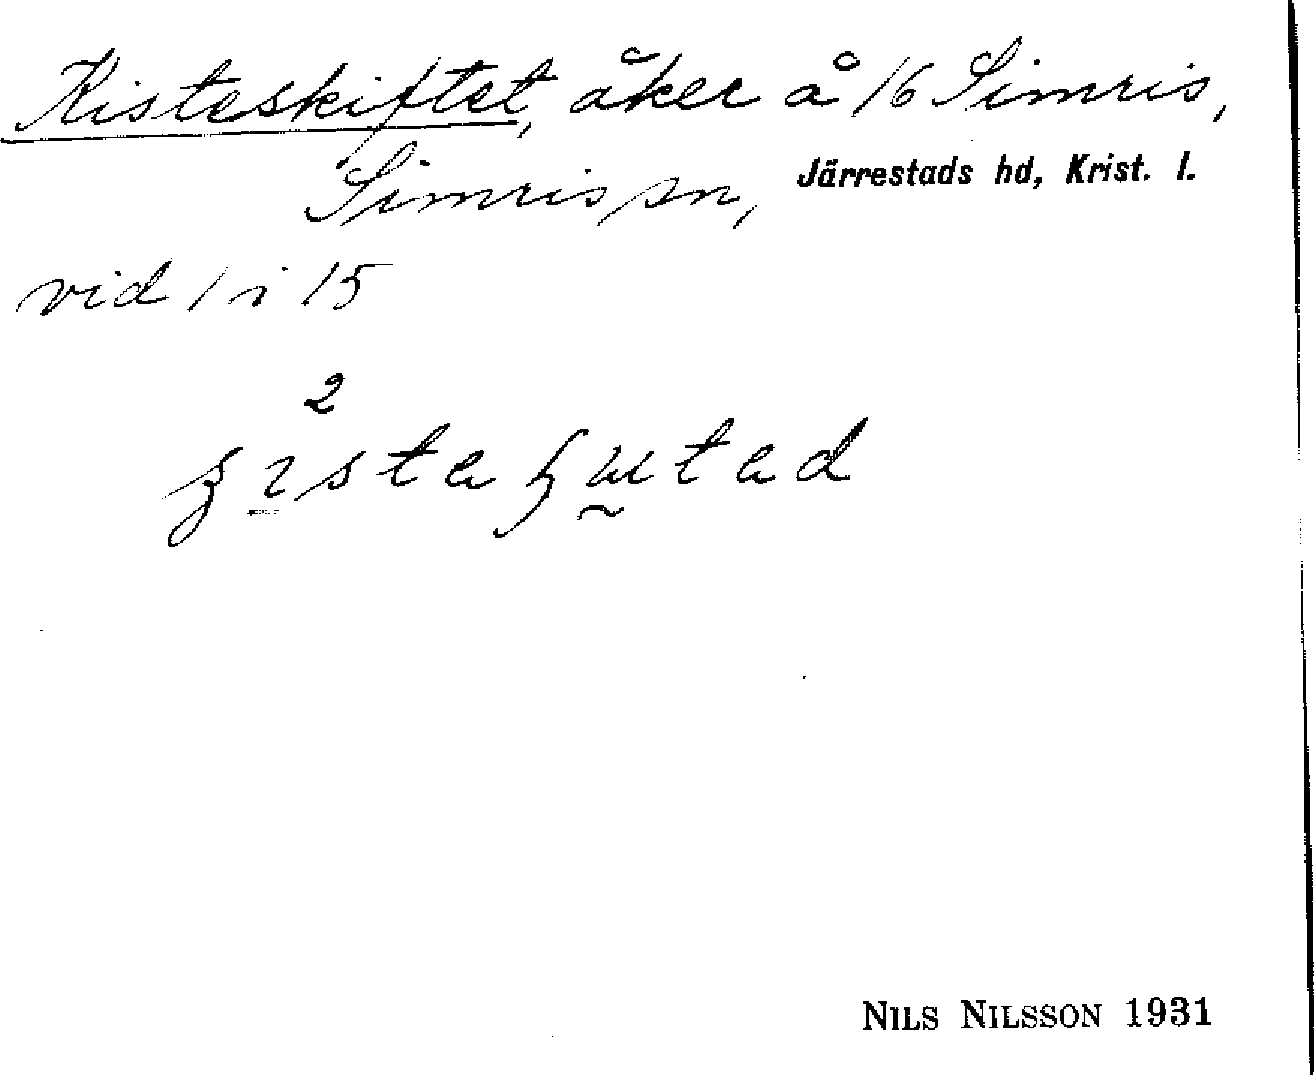 Kisteskiftet, åker å 16 Simris,
Simris sn, Järrestads hd, Krist. l.
vid 1 i 15
2
NILS NILSSON 1931